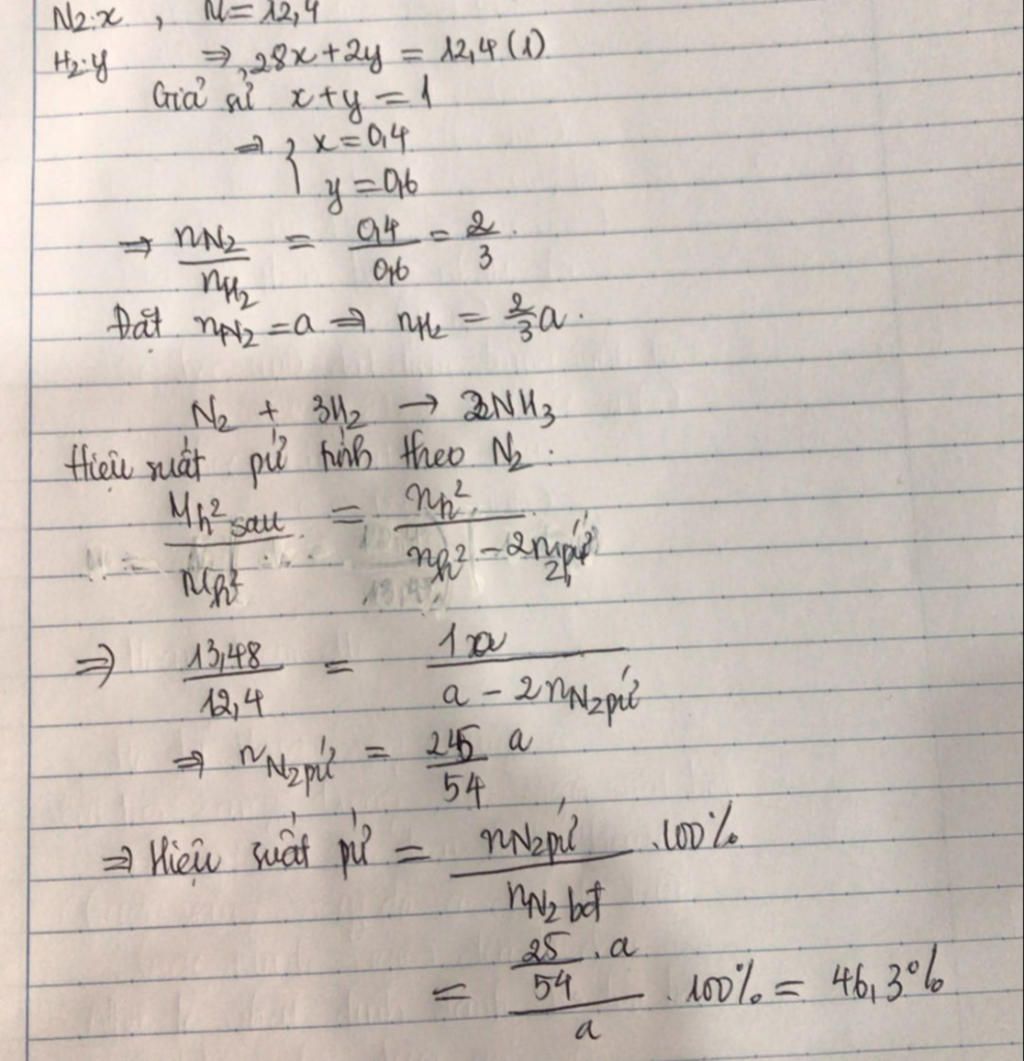 N2: x , M = 12,4
H2: y ⇒ 28x + 2y = 12,4 (1)
Giả sử x + y = 1
⇒ { x = 0,4
y = 0,6
⇒ nN2 / nH2 = 0,4 / 0,6 = 2/3.
Đặt nN2 = a ⇒ nH2 = 2/3 a.
N2 + 3H2 → 2NH3
Hiệu suất pứ tính theo N2:
Mh2 sau / Mh2 = nh2 / nh2 - 2npứ
⇒ 13,48 / 12,4 = 1a / a - 2nN2pứ
⇒ nN2pứ = 25/54 a
⇒ Hiệu suất pứ = nN2pứ / nN2 bđ .100%
= 25/54 . a / a . 100% = 46,3%